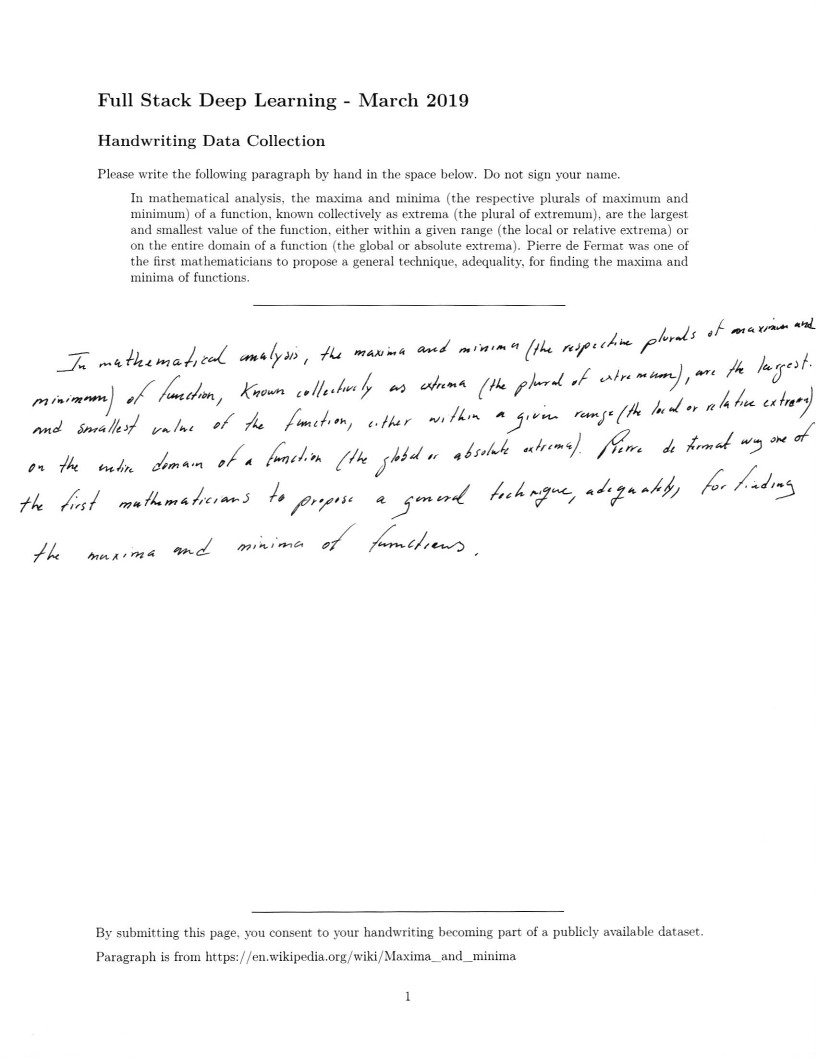 Full Stack Deep Learning - March 2019
Handwriting Data Collection
Please write the following paragraph by hand in the space below. Do not sign your name.
In mathematical analysis, the maxima and minima (the respective plurals of maximum and
minimum) of a function, known collectively as extrema (the plural of extremum), are the largest
and smallest value of the function, either within a given range (the local or relative extrema) or
on the entire domain of a function (the global or absolute extrema). Pierre de Fermat was one of
the first mathematicians to propose a general technique, adequality, for finding the maxima and
minima of functions.
In mathematical analysis, the maxima and minima (the respective plurals of maximum and
minimum) of function, Known collectively as extrema (the plural of extremum), are the largest.
and smallest value of the function, either within a given range (the local or relative extrema)
on the entire domain of a function (the global or absolute extrema). Pierre de Fermat was one of
the first mathematicians to propose a general technique, adequately, for finding
the maxima and minima of functions.
By submitting this page, you consent to your handwriting becoming part of a publicly available dataset.
Paragraph is from https://en.wikipedia.org/wiki/Maxima_and_minima
1